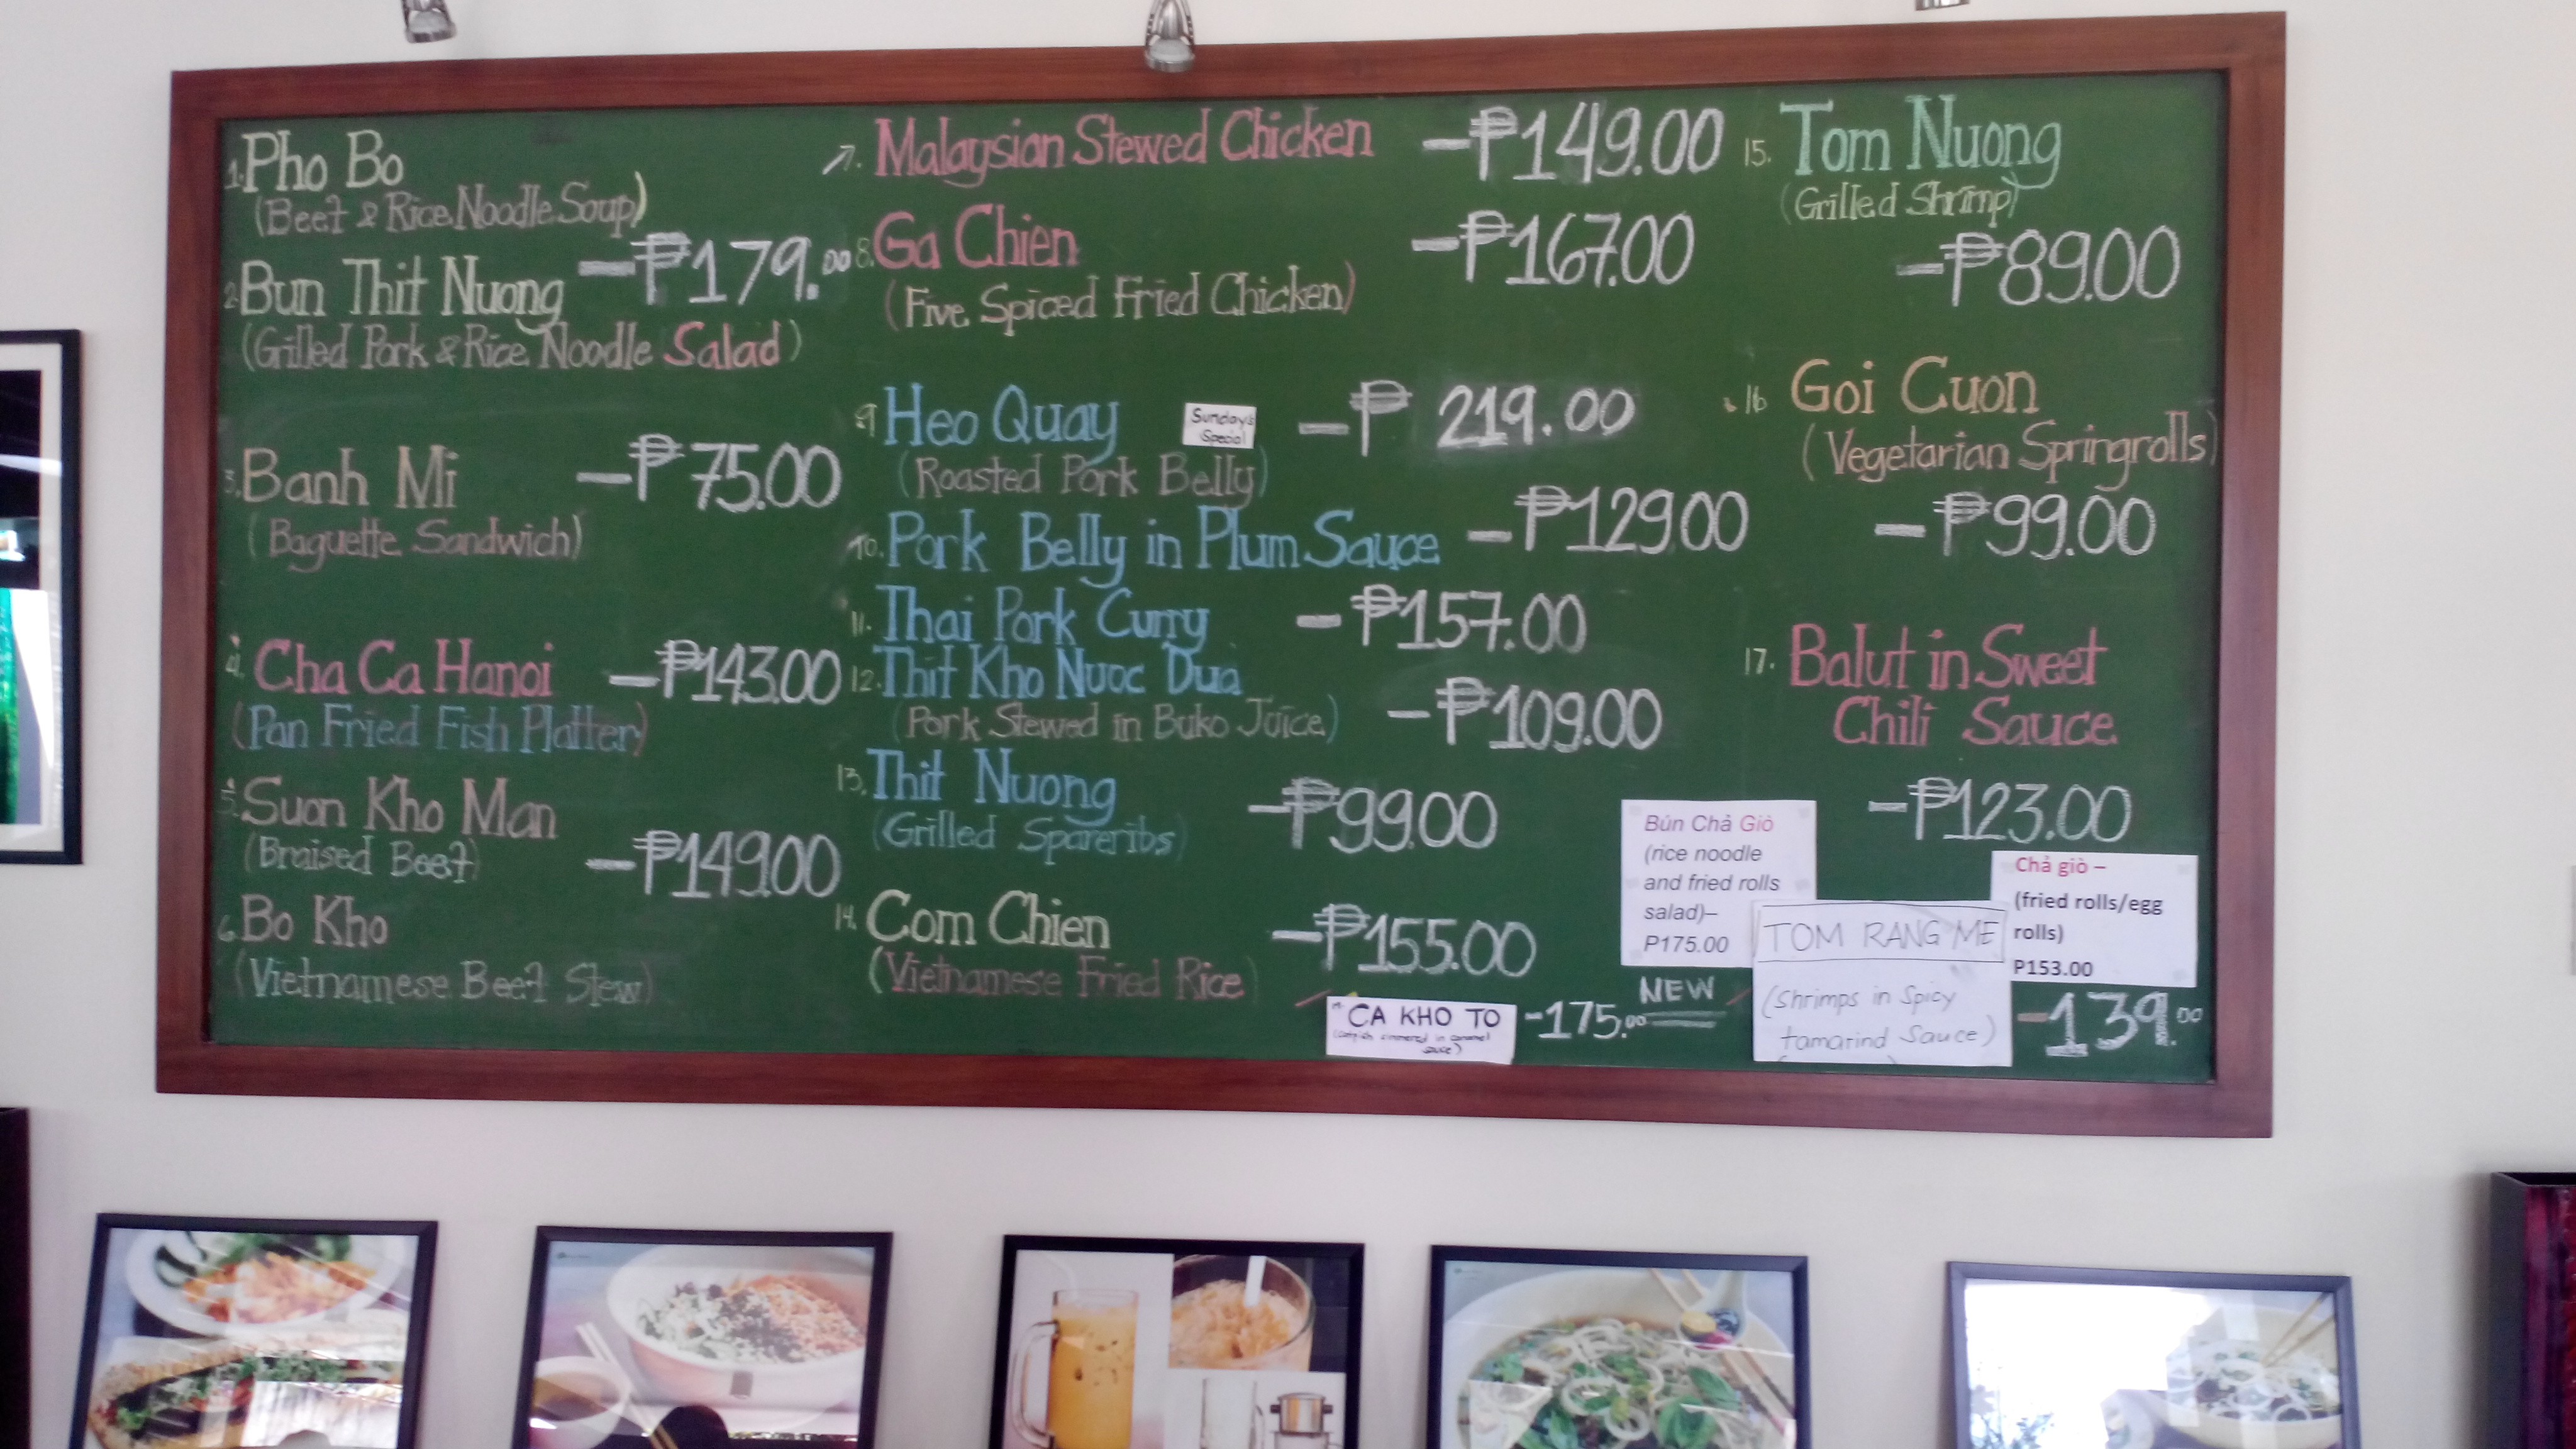 1. Pho Bo
(Beef & Rice Noodle Soup)
2. Bun Thit Nuong -₱179.00
(Grilled Pork & Rice Noodle Salad)
3. Banh Mi -₱75.00
(Baguette Sandwich)
4. Cha Ca Hanoi -₱143.00
(Pan Fried Fish Platter)
5. Suon Kho Man
(Braised Beef) -₱149.00
6. Bo Kho
(Vietnamese Beef Stew)
7. Malaysian Stewed Chicken -₱149.00
8. Ga Chien -₱167.00
(Five Spiced Fried Chicken)
9 Heo Quay Sunday's Special -₱219.00
(Roasted Pork Belly)
10. Pork Belly in Plum Sauce -₱129.00
11. Thai Pork Curry -₱157.00
12. Thit Kho Nuoc Dua
(Pork Stewed in Buko Juice) -₱109.00
13. Thit Nuong -₱99.00
(Grilled Spareribs)
14. Com Chien -₱155.00
(Vietnamese Fried Rice)
CA KHO TO -175.00
(catfish simmered in caramel
sauce)
NEW
15. Tom Nuong
(Grilled Shrimp)
-₱89.00
16 Goi Cuon
(Vegetarian Springrolls)
-₱99.00
17. Balut in Sweet
Chili Sauce
-₱123.00
Bún Chả Giò
(rice noodle
and fried rolls
salad)–
P175.00
TOM RANG ME
(Shrimps in Spicy
tamarind Sauce)
-139.00
Chả giò –
(fried rolls/egg
rolls)
P153.00